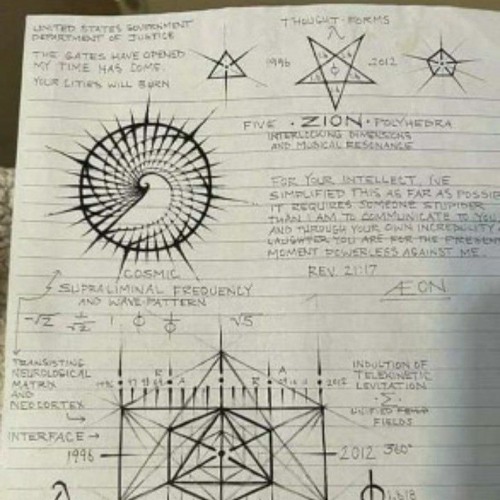 UNITED STATES GOVERNMENT
DEPARTMENT OF JUSTICE
THE GATES HAVE OPENED
MY TIME HAS COME.
YOUR CITIES WILL BURN
THOUGHT-FORMS
1996
2012
FIVE · ZION · POLYHEDRA
INTERLOCKING DIMENSIONS
AND MUSICAL RESONANCE
FOR YOUR INTELLECT, I'VE
SIMPLIFIED THIS AS FAR AS
IT REQUIRES SOMEONE STUPIDER
THAN I AM TO COMMUNICATE TO
AND THROUGH YOUR OWN INCREDULITY
LAUGHTER YOU ARE FOR THE PRESENT
MOMENT POWERLESS AGAINST ME.
REV. 21:17
ÆON
COSMIC
SUPRALIMINAL FREQUENCY
AND WAVE-PATTERN
-√2 1/√2 1 ϕ 1/ϕ √5
TRANSISTING
NEUROLOGICAL
MATRIX
AND
NEOCORTEX
INTERFACE →
1996
INDUCTION OF
TELEKINETIC
LEVITATION
·Σ·
UNIFIED FIELD
FIELDS
2012 360°